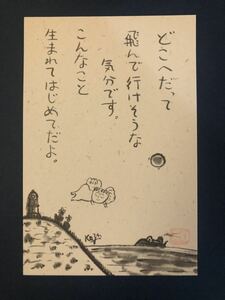 どこへだって
飛んで行けそうな
気分です。
こんなこと
生まれてはじめてだよ。